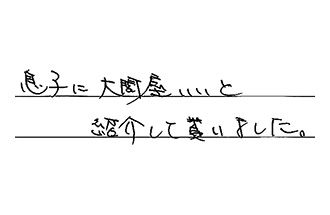 息子に大関屋いいと
紹介して貰いました。